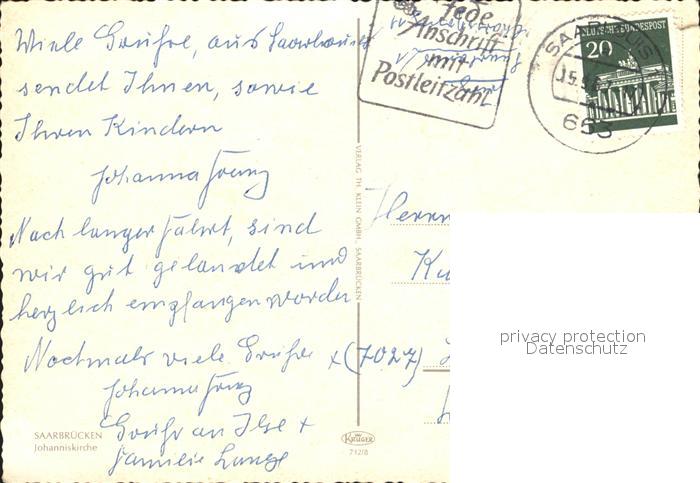 Viele Grüße, aus Saarlouis
sendet Ihnen, sowie
Ihren Kindern
Johanna Franz
Nach langer Fahrt, sind
wir gut gelandet und
herzlich empfangen worden
Nochmals viele Grüße
Johanna Franz
Grüße an Ilse +
Familie Lange
SAARBRÜCKEN
Johanniskirche
VERLAG TH. KLEIN GMBH., SAARBRÜCKEN
KRÜGER
712/8
Jede
Anschrift
mit
Postleitzahl
SAARLOUIS
663
DEUTSCHE BUNDESPOST
20
Herrn
Ku
x (7027)
privacy protection
Datenschutz